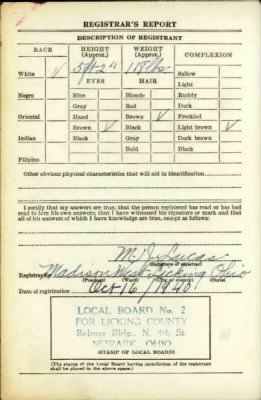 REGISTRAR'S REPORT
DESCRIPTION OF REGISTRANT
RACE HEIGHT (Approx.) WEIGHT (Approx.) COMPLEXION
White ✓ 5ft-2in 118 lbs Sallow
EYES HAIR Light
Negro Blue Blonde Ruddy
Gray Red Dark
Oriental Hazel Brown ✓ Freckled
Brown ✓ Black Light brown ✓
Indian Black Gray Dark brown
Bald Black
Filipino
Other obvious physical characteristics that will aid in identification
I certify that my answers are true; that the person registered has read or has had read to him his own answers; that I have witnessed his signature or mark and that all of his answers of which I have knowledge are true, except as follows:
M. J. Lucas
(Signature of registrar)
Registrar for Madison West Licking Ohio
(Precinct) (Ward) (City or county) (State)
Date of registration Oct 16 / 1940
LOCAL BOARD No. 2
FOR LICKING COUNTY
Belmar Bldg., N. 4th St.
NEWARK, OHIO
(STAMP OF LOCAL BOARD)
(The stamp of the Local Board having jurisdiction of the registrant shall be placed in the above space.)